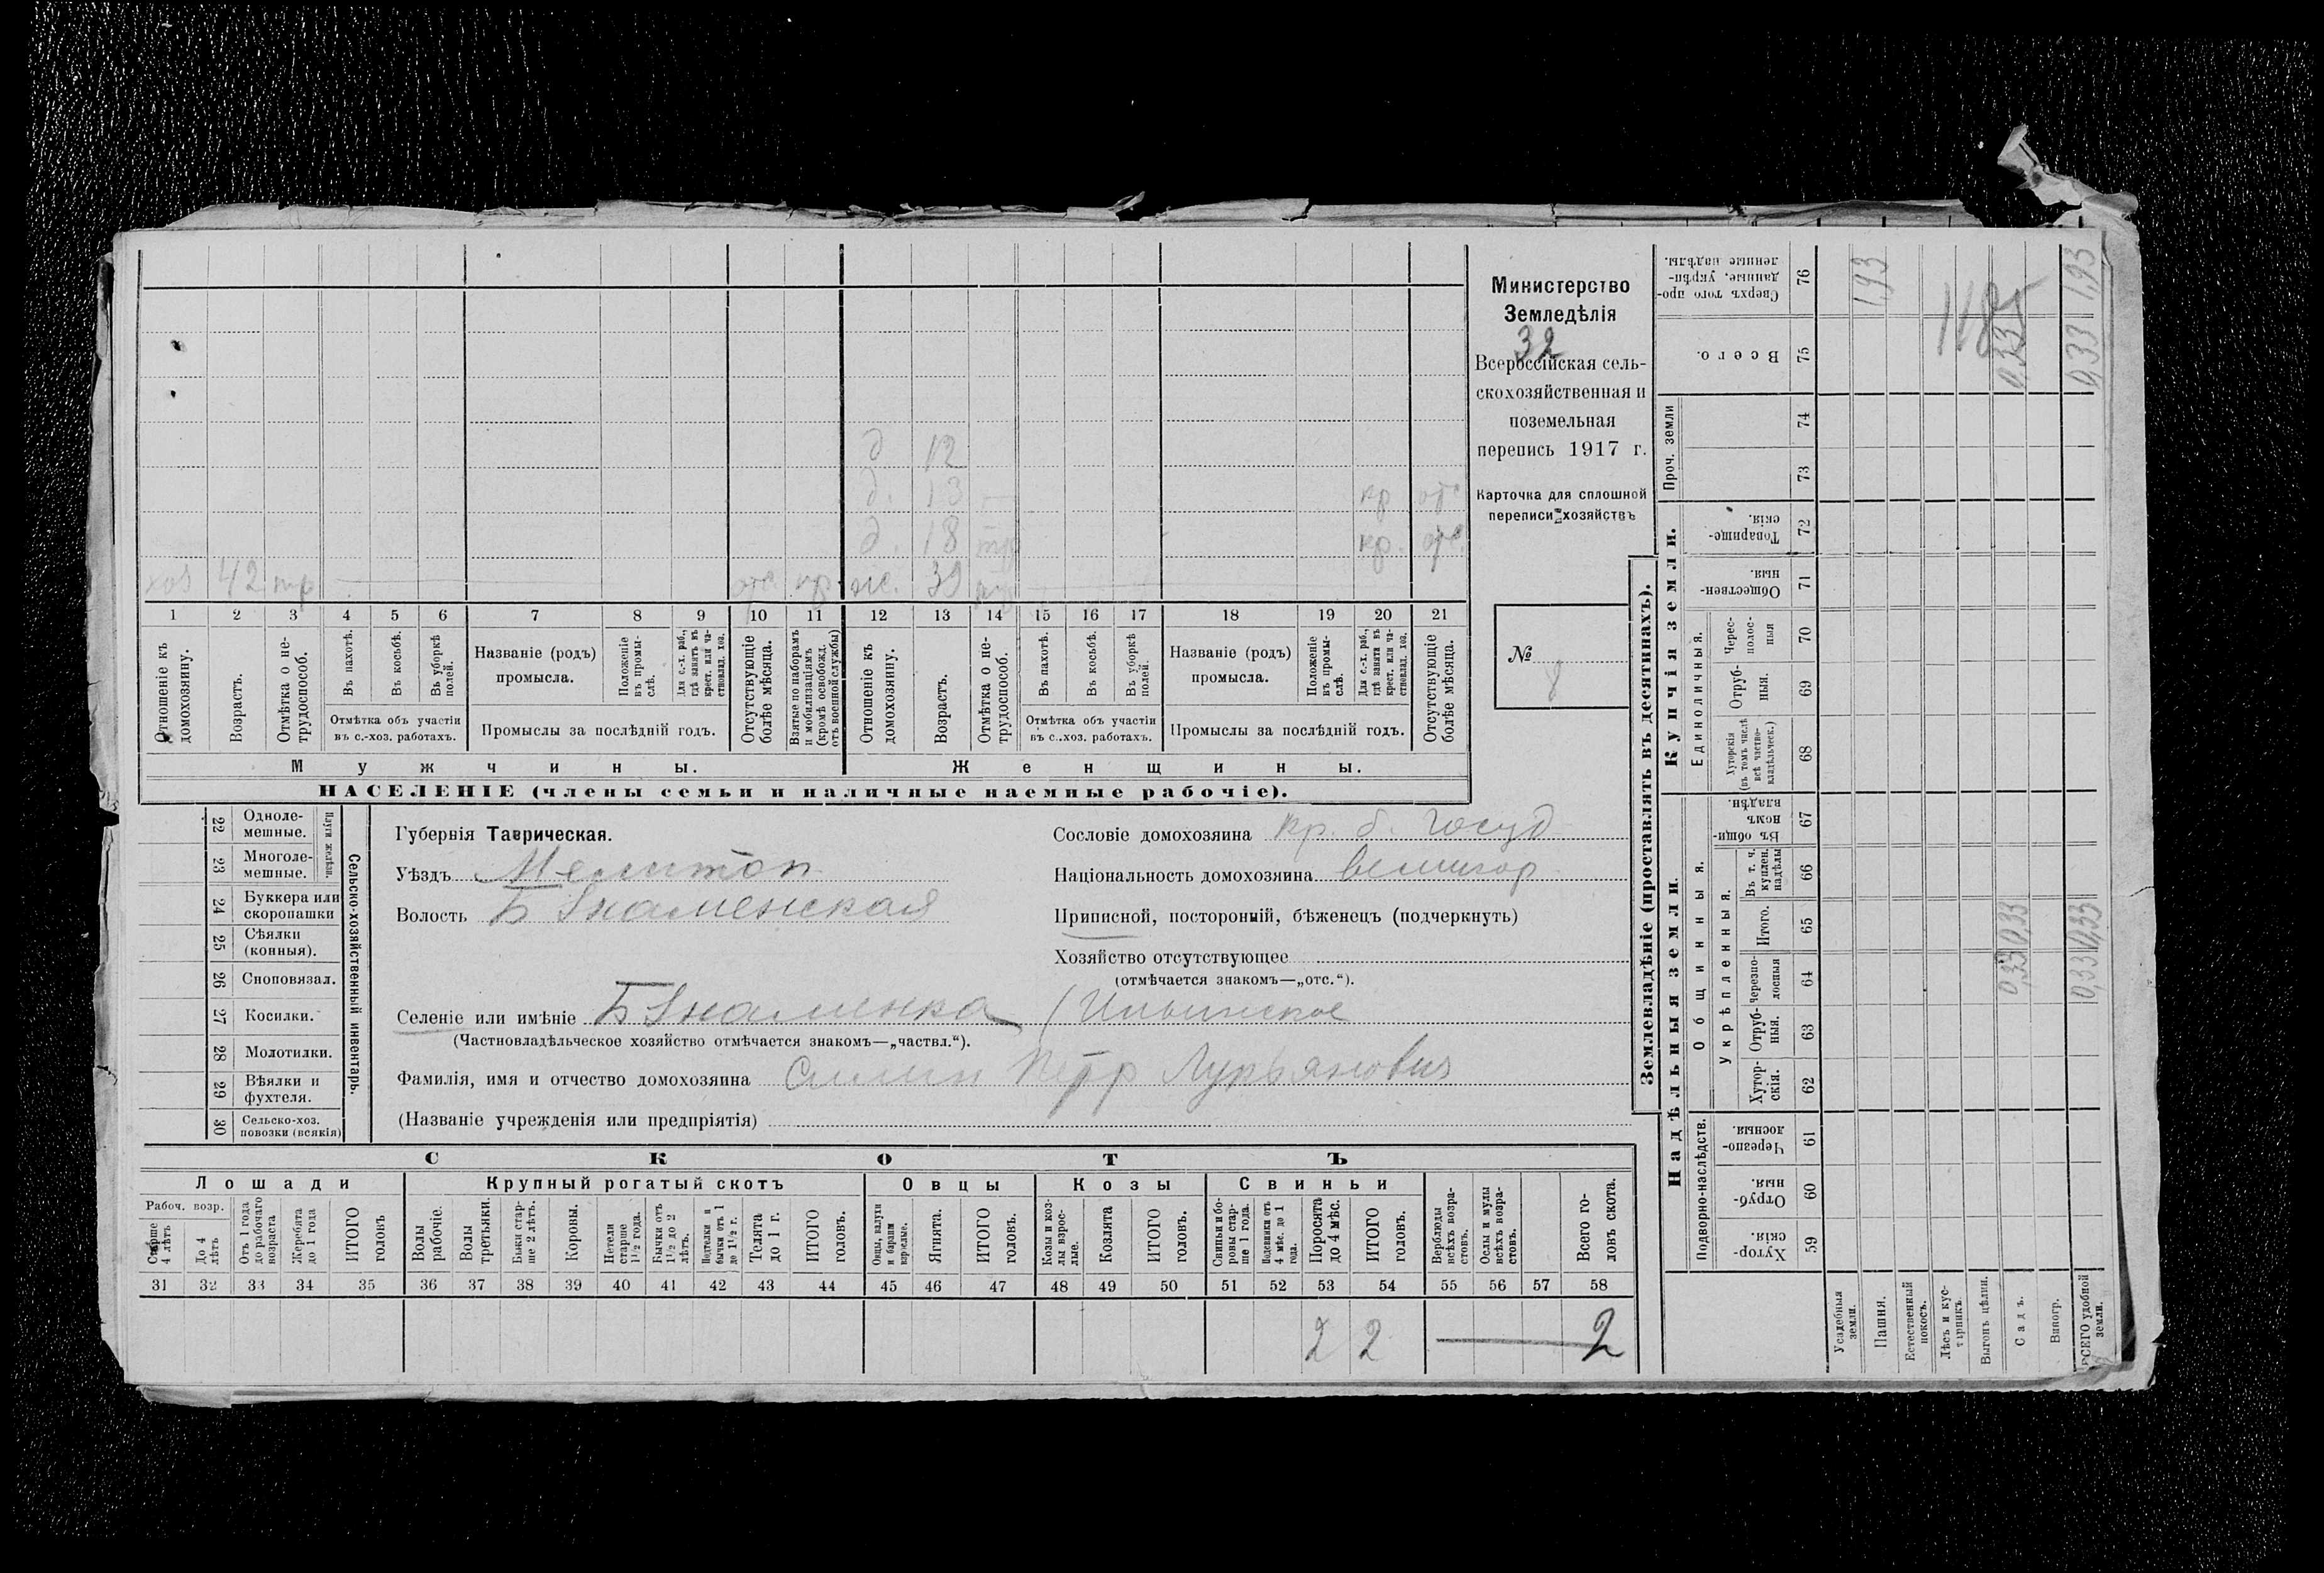 д 12
д. 13 — кр отс
д. 18 тр кр. отс.
хоз 42 тр. отс. кр. ж. 39 тр
1 2 3 4 5 6 7 8 9 10 11 12 13 14 15 16 17 18 19 20 21
Отношеніе къ домохозяину.
Возрастъ.
Отмѣтка о не-трудоспособ.
Въ пахотѣ.
Въ косьбѣ.
Въ уборкѣ полей.
Отмѣтка объ участіи
въ с.-хоз. работахъ.
Названіе (родъ)
промысла.
Положеніе въ промы-слѣ.
Для с.-х. раб., гдѣ занятъ въ крест. или ча-стновлад. хоз.
Промыслы за послѣдній годъ.
Отсутствующіе болѣе мѣсяца.
Взятые по наборамъ и мобилизаціямъ (кромѣ освобожд. отъ военной службы)
Отношеніе къ домохозяину.
Возрастъ.
Отмѣтка о не-трудоспособ.
Въ пахотѣ.
Въ косьбѣ.
Въ уборкѣ полей.
Отмѣтка объ участіи
въ с.-хоз. работахъ.
Названіе (родъ)
промысла.
Положеніе въ промы-слѣ.
Для с.-х. раб., гдѣ заняти въ крест. или ча-стновлад. хоз.
Промыслы за послѣдній годъ.
Отсутствующіе болѣе мѣсяца.
Мужчины.
Женщины.
НАСЕЛЕНІЕ (члены семьи и наличные наемные рабочіе).
Министерство
Земледѣлія
32
Всероссійская сель-
скохозяйственная и
поземельная
перепись 1917 г.
Карточка для сплошной
переписи хозяйствъ
№
8
22 Одноле-мешные.
23 Многоле-мешные.
Плуги желѣзн.
24 Буккера или скоропашки
25 Сѣялки (конныя).
26 Сноповязал.
27 Косилки.
28 Молотилки.
29 Вѣялки и фухтеля.
30 Сельско-хоз. повозки (всякія)
Сельско-хозяйственный инвентарь.
Губернія Таврическая.
Уѣздъ Мелитоп
Волость Б Знаменская
Сословіе домохозяина кр. б. госуд
Національность домохозяина великор
Приписной, посторонній, бѣженецъ (подчеркнуть)
Хозяйство отсутствующее
(отмѣчается знакомъ—„отс.“).
Селеніе или имѣніе Б Знаменка (Ильинское
(Частновладѣльческое хозяйство отмѣчается знакомъ—„частвл.“).
Фамилія, имя и отчество домохозяина Силин Петр Лурьянович
(Названіе учрежденія или предпріятія)
СКОТЪ
Лошади
Крупный рогатый скотъ
Овцы
Козы
Свиньи
Рабоч. возр.
Старше 4 лѣтъ
До 4 лѣтъ
Отъ 1 года до рабочаго возраста
Жеребята до 1 года
ИТОГО головъ
Волы рабочіе.
Волы третьяки.
Быки стар-ше 2 лѣтъ.
Коровы.
Нетели старше 1½ года.
Бычки отъ 1½ до 2 лѣтъ.
Подтелки и бычки отъ 1 до 1½ г.
Телята до 1 г.
ИТОГО головъ.
Овцы, валухи и бараны взрослые.
Ягнята.
ИТОГО головъ.
Козы и коз-лы взрос-лые.
Козлята
ИТОГО головъ.
Свиньи и бо-ровы стар-ше 1 года.
Подсвинки отъ 4 мѣс. до 1 года.
Поросята до 4 мѣс.
ИТОГО головъ.
Верблюды всѣхъ возра-стовъ.
Ослы и мулы всѣхъ возра-стовъ.
Всего го-ловъ скота.
31 32 33 34 35 36 37 38 39 40 41 42 43 44 45 46 47 48 49 50 51 52 53 54 55 56 57 58
2 2 — 2
Землевладѣніе (проставлять въ десятинахъ).
Надѣльныя земли.
Купчія земли.
Проч. земли
Подворно-наслѣдств.
Общинныя.
Укрѣпленныя.
Единоличныя.
Хутор-скія. 59
Отруб-ныя. 60
Черезпо-лосныя. 61
Хутор-скія. 62
Отруб-ныя. 63
Черезпо-лосныя 64
Итого. 65
Въ т. ч. куплен. надѣлы 66
Въ общин-номъ владѣн. 67
Хуторскія (въ томъ числѣ всѣ частно-владѣльческ.) 68
Отруб-ныя. 69
Черес-полос-ныя 70
Обществен-ныя. 71
Товарище-скія. 72
73
74
Всего. 75
Сверхъ того про-данные, укрѣп-ленные надѣлы. 76
Усадебныя земли.
Пашня. 1,93
Естественный покосъ.
Лѣсъ и кус-тарникъ.
Выгонъ цѣлин.
Садъ. 0,33 0,33 0,33
Виногр.
ВСЕГО удобной земли. 0,33 0,33 0,33 1,93